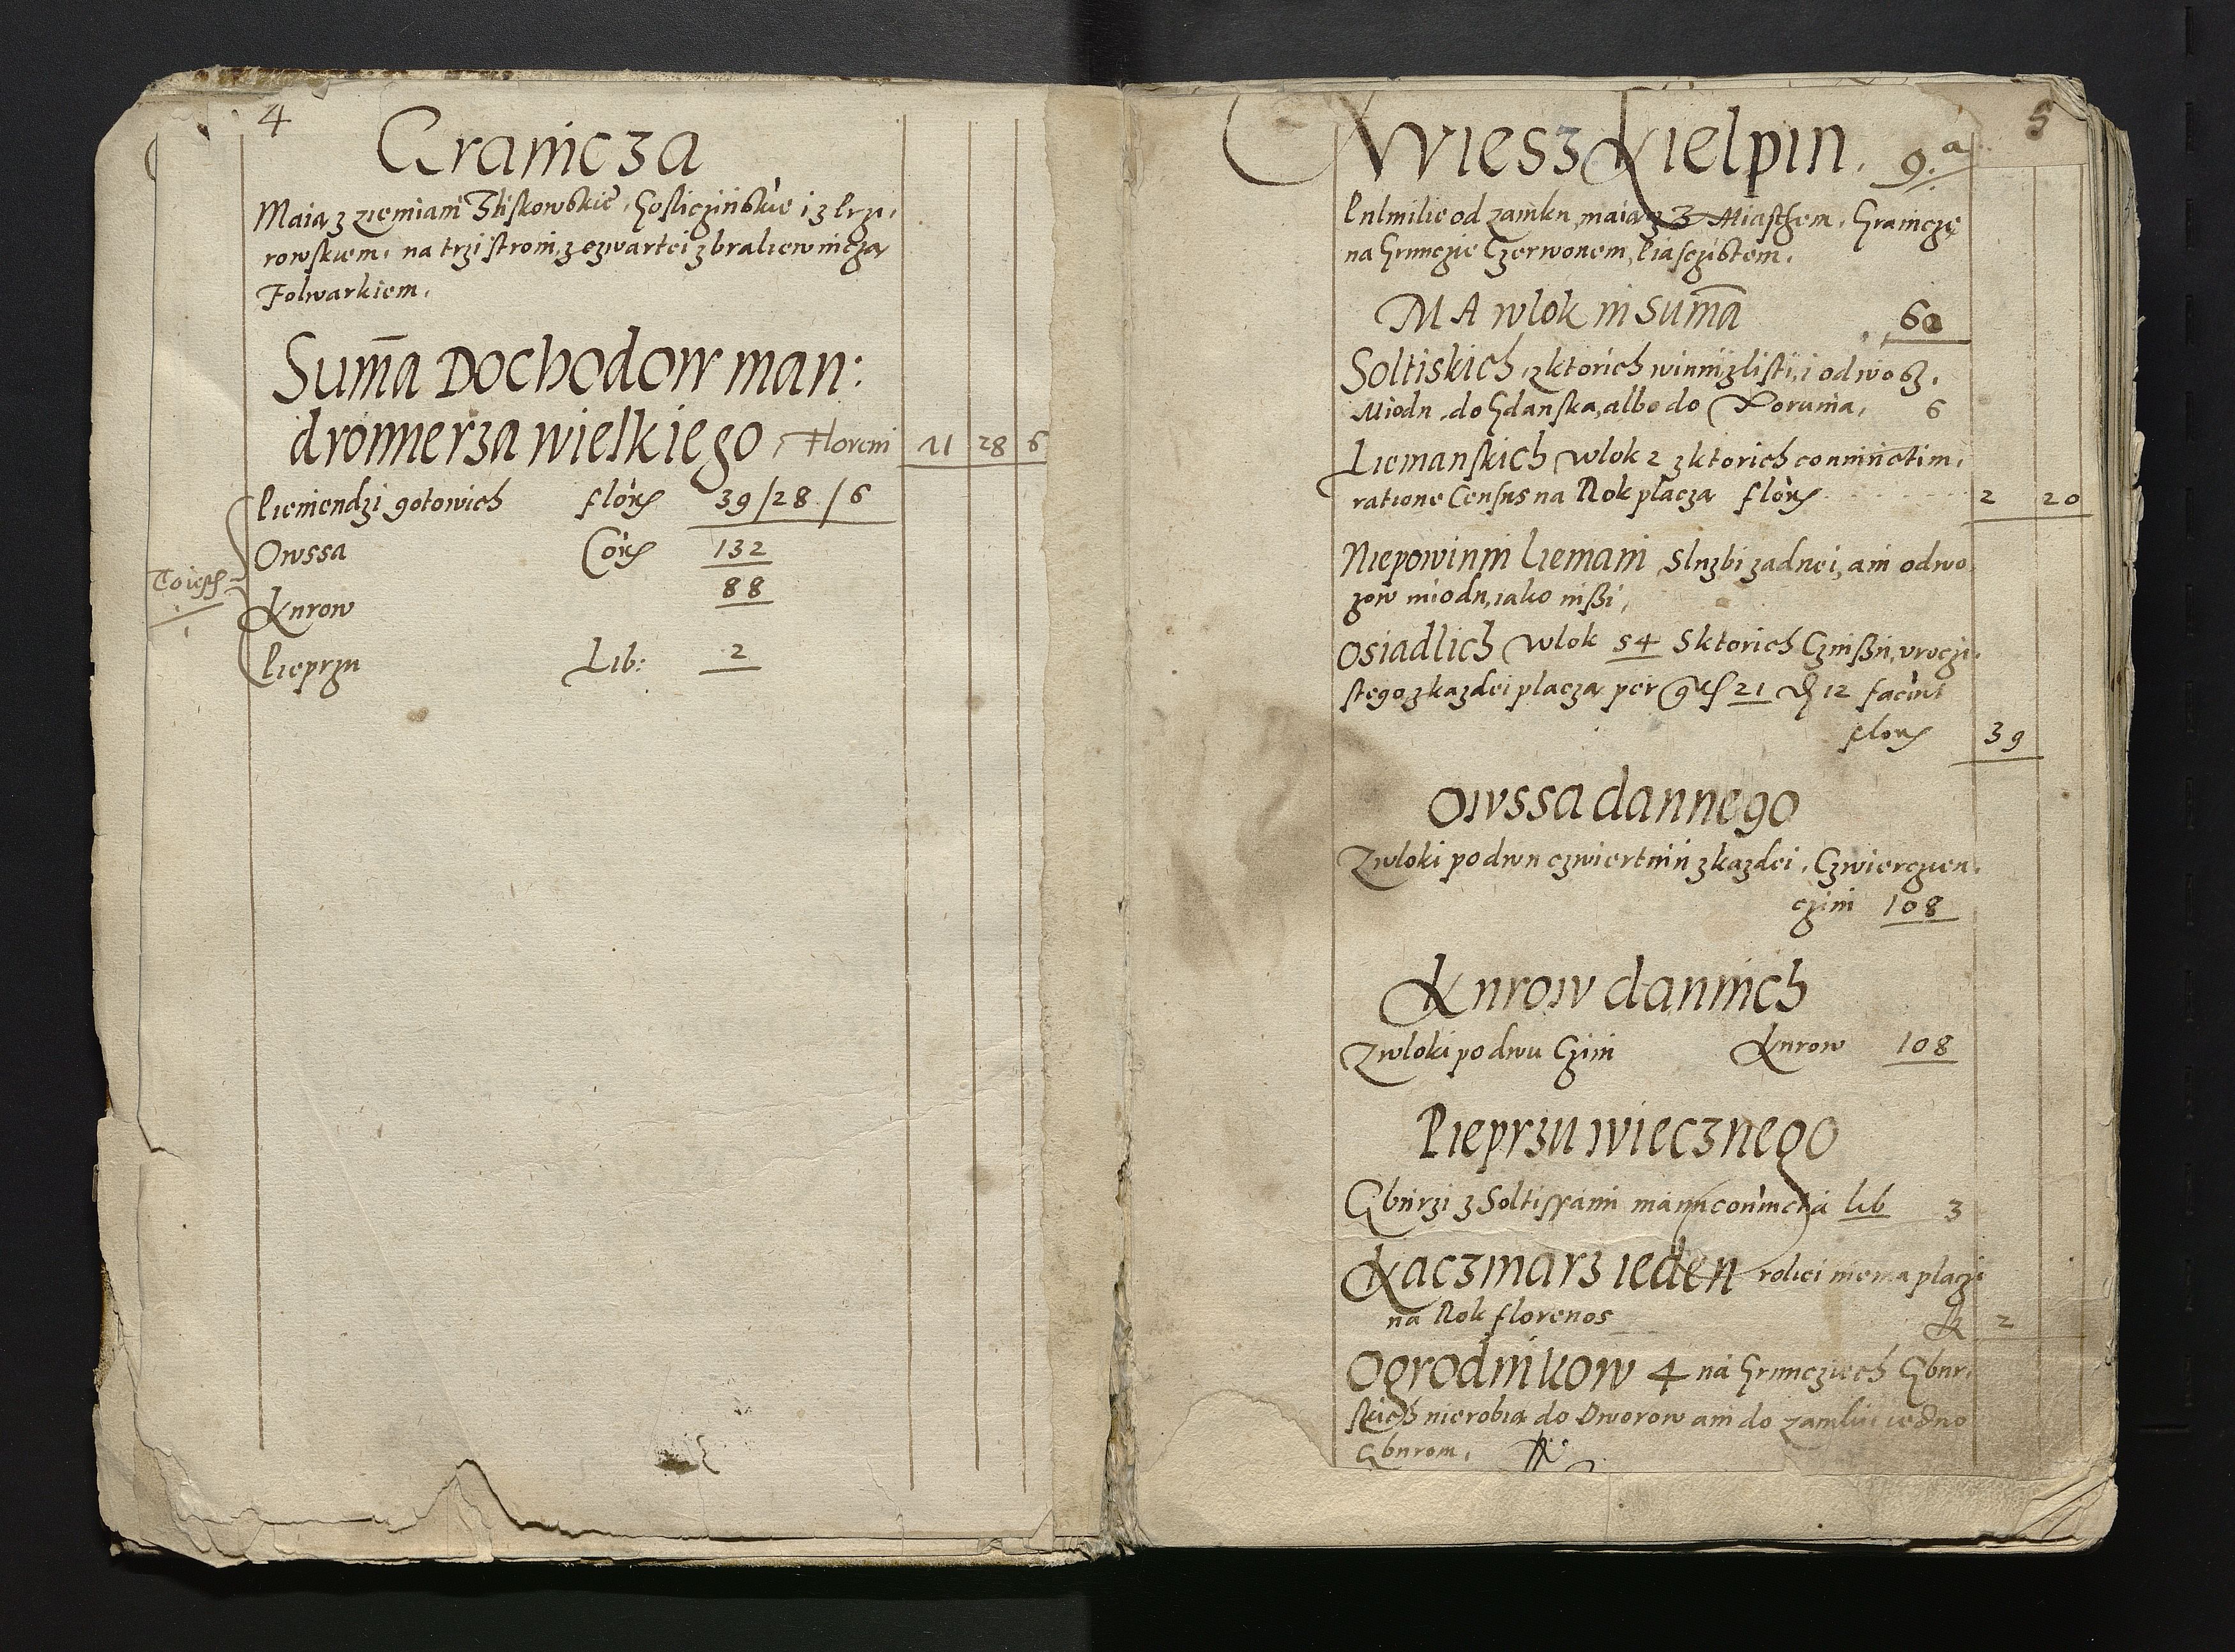 4
Granicza
Maia z ziemiani Zliskowskie, Gosliczinskie i z Krzi,
rowskiem, na trzi stroni, z czwartei z bralewnicza
Folwarkiem,
Sum̄a Dochodow man:
dromerza wielkiego, Floreni 41 28 6
To iest
Pieniendzi gotowich flor 39/28/6
Owssa Cor 132
Kurow 88
Pieprzu Lib: 2
5
Wiesz Kielpin. 9.a
Pulmilie od zamku, maia z Miastem, Granicze
na Grunczie Czerwonem, Piasczistem,
MA wlok in Sum̄a 60
Soltiskich, z ktorich winni z listi, i odwosz,
Miodu, do Gdanska, albo do Torunia, 6
Liemanskich wlok 2 z ktorich coniunctim,
ratione Census na Rok placza flor 2 20
Niepowinni Liemani Sluzbi zadnei, ani odwo
zow miodu, iako inszi,
Osiadlich wlok 54 S ktorich Czinszu, uroczi,
stego z kazdei placza per gr 21 d 12 faciunt
flor 39
Owssa dannego
Z wloki po dwu czwiertnii z kazdei, Czwierczien,
czini 108
Kurow dannich
Z wloki po dwu Czini Kurow 108
Pieprzu wiecznego
Gburzi z Soltissami coniuncta lib 3
Kaczmarz ieden rolei niema placzi
na Rok florenos 2
Ogrodnikow 4 na Gruncziech Gbur,
skich nierobia do Dworow ani do zamku iedno
Gburom,